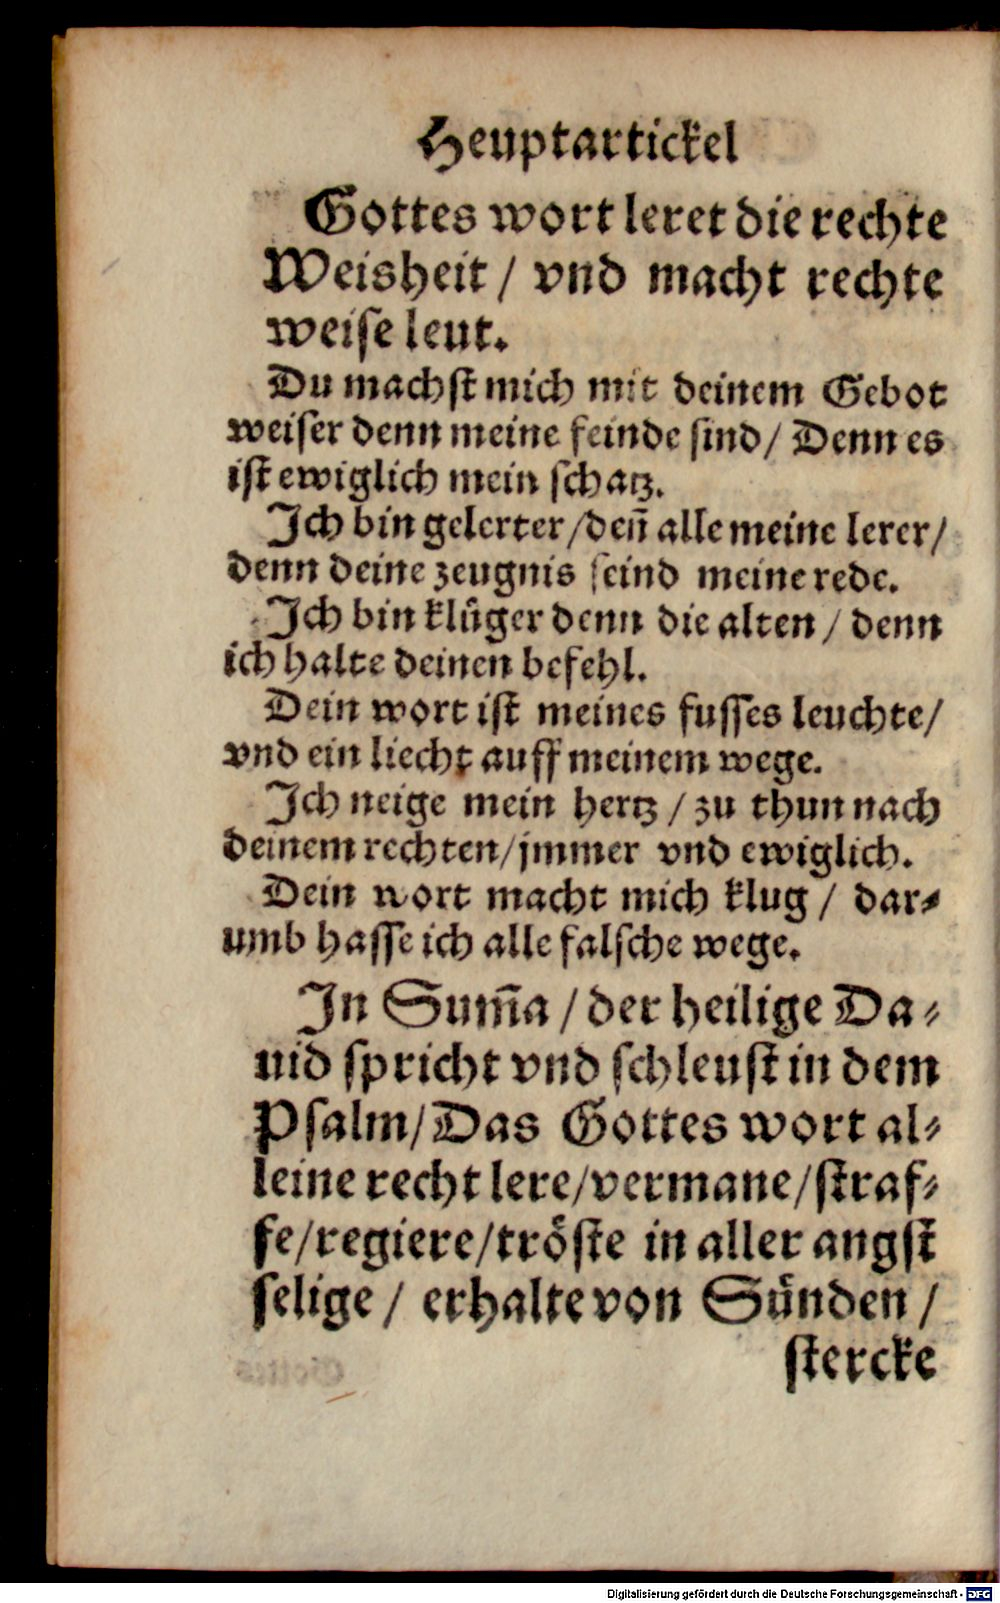 Heuptartickel
Gottes wort leret die rechte
Weisheit / vnd macht rechte
weise leut.
Du machst mich mit deinem Gebot
weiser denn meine feinde sind / Denn es
ist ewiglich mein schatz.
Ich bin gelerter / deñ alle meine lerer /
denn deine zeugnis seind meine rede.
Ich bin klüger denn die alten / denn
ich halte deinen befehl.
Dein wort ist meines fusses leuchte /
vnd ein liecht auff meinem wege.
Ich neige mein hertz / zu thun nach
deinem rechten / jmmer vnd ewiglich.
Dein wort macht mich klug / dar⸗
umb hasse ich alle falsche wege.
In Sum̃a / der heilige Da⸗
uid spricht vnd schleust in dem
Psalm / Das Gottes wort al⸗
leine recht lere / vermane / straf⸗
fe / regiere / tröste in aller angst
selige / erhalte von Sünden /
stercke
Digitalisierung gefördert durch die Deutsche Forschungsgemeinschaft - DFG